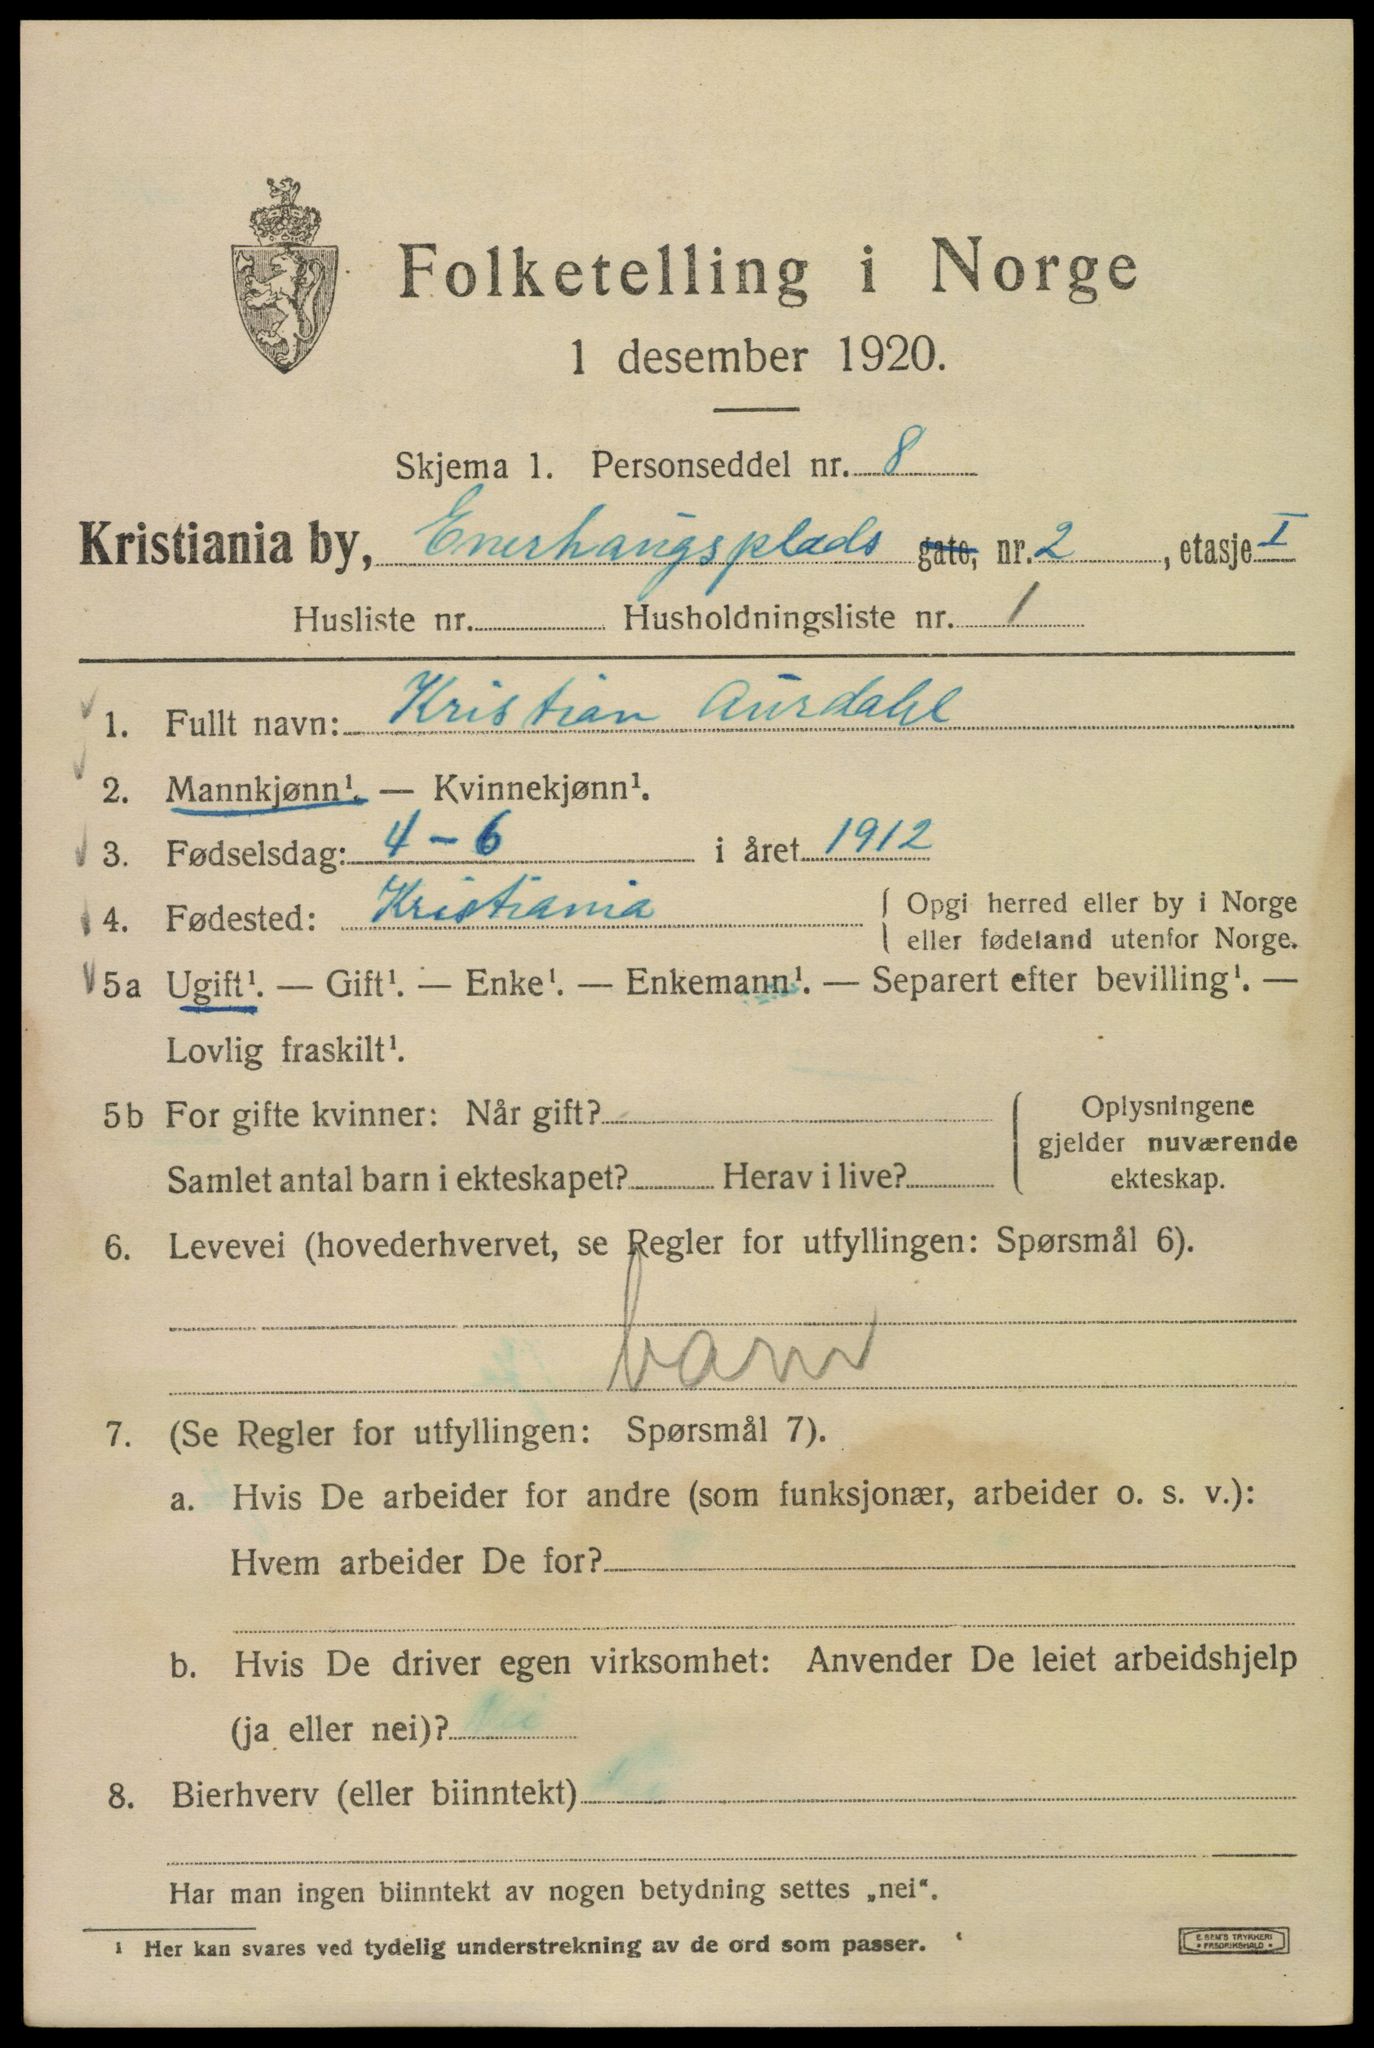 Folketelling i Norge
1 desember 1920.
Skjema 1. Personseddel nr. 8
Kristiania by, Enerhaugsplads gate, nr. 2, etasje I
Husliste nr. Husholdningsliste nr. 1
1. Fullt navn: Kristian Aurdahl
2. Mannkjønn¹. — Kvinnekjønn¹.
3. Fødselsdag: 4 - 6 i året 1912
4. Fødested: Kristiania { Opgi herred eller by i Norge
eller fødeland utenfor Norge.
5a Ugift¹. — Gift¹. — Enke¹. — Enkemann¹. — Separert efter bevilling¹. —
Lovlig fraskilt¹.
5b For gifte kvinner: Når gift? Oplysningene
gjelder nuværende
Samlet antal barn i ekteskapet? Herav i live? ekteskap.
6. Levevei (hovederhvervet, se Regler for utfyllingen: Spørsmål 6).
barn
7. (Se Regler for utfyllingen: Spørsmål 7).
a. Hvis De arbeider for andre (som funksjonær, arbeider o. s. v.):
Hvem arbeider De for?
b. Hvis De driver egen virksomhet: Anvender De leiet arbeidshjelp
(ja eller nei)? Nei
8. Bierhverv (eller biinntekt) Nei
Har man ingen biinntekt av nogen betydning settes „nei“.
¹ Her kan svares ved tydelig understrekning av de ord som passer.
E. SEM'S TRYKKERI
FREDRIKSHALD